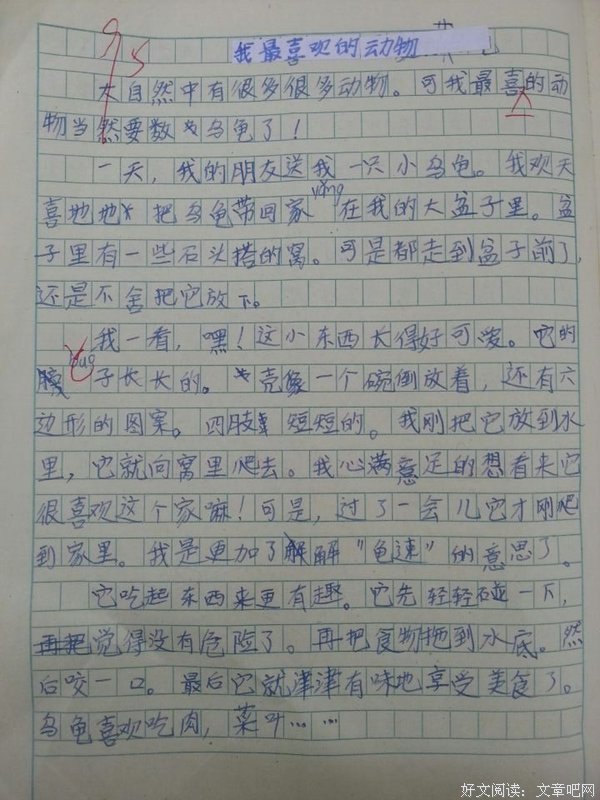 95
我最喜欢的动物
大自然中有很多很多动物。可我最喜的动
物当然要数乌龟了！
一天，我的朋友送我一只小乌龟。我欢天
yǎng
喜地地把乌龟带回家 在我的大盆子里。盆
子里有一些石头搭的窝。可是都走到盆子前了，
还是不舍把它放下。
我一看，嘿！这小东西长得好可爱。它的
子长长的。壳像一个碗倒放着，还有六
边形的图案。四肢短短的。我刚把它放到水
里，它就向窝里爬去。我心满意足的想看来它
很喜欢这个家嘛！可是，过了一会儿它才刚爬
到家里。我是更加了解“龟速”的意思了。
它吃起东西来更有趣。它先轻轻碰一下，
觉得没有危险了。再把食物拖到水底。然
后咬一口。最后它就津津有味地享受美食了。
乌龟喜欢吃肉，菜叶……
好文阅读：文章吧网